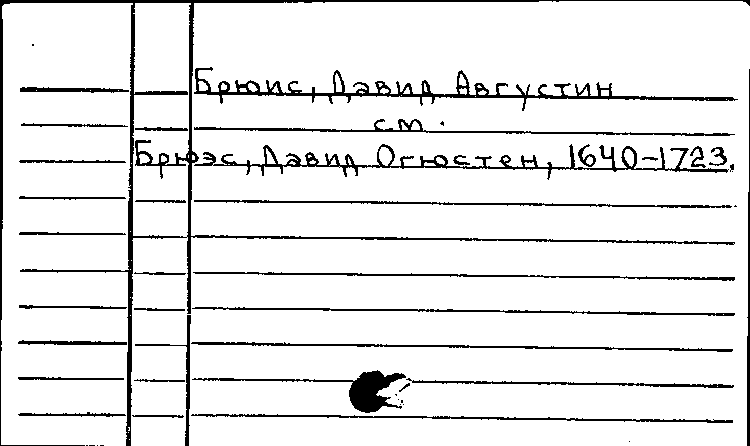 Брюис, Давид Августин
см.
Брюэс, Давид Огюстен, 1640-1723.